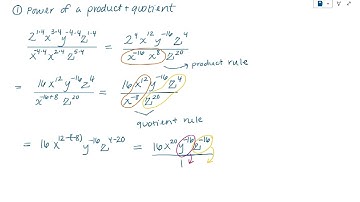 ① Power of a product + quotient
2^{1·4} x^{3·4} y^{-4·4} z^{1·4} / x^{-4·4} x^{2·4} z^{5·4} = 2^4 x^{12} y^{-16} z^4 / x^{-16} x^8 z^{20}
product rule
= 16 x^{12} y^{-16} z^4 / x^{-16+8} z^{20} = 16 x^{12} y^{-16} z^4 / x^{-8} z^{20}
quotient rule
= 16 x^{12-(-8)} y^{-16} z^{4-20} = 16 x^{20} y^{-16} z^{-16} / 1